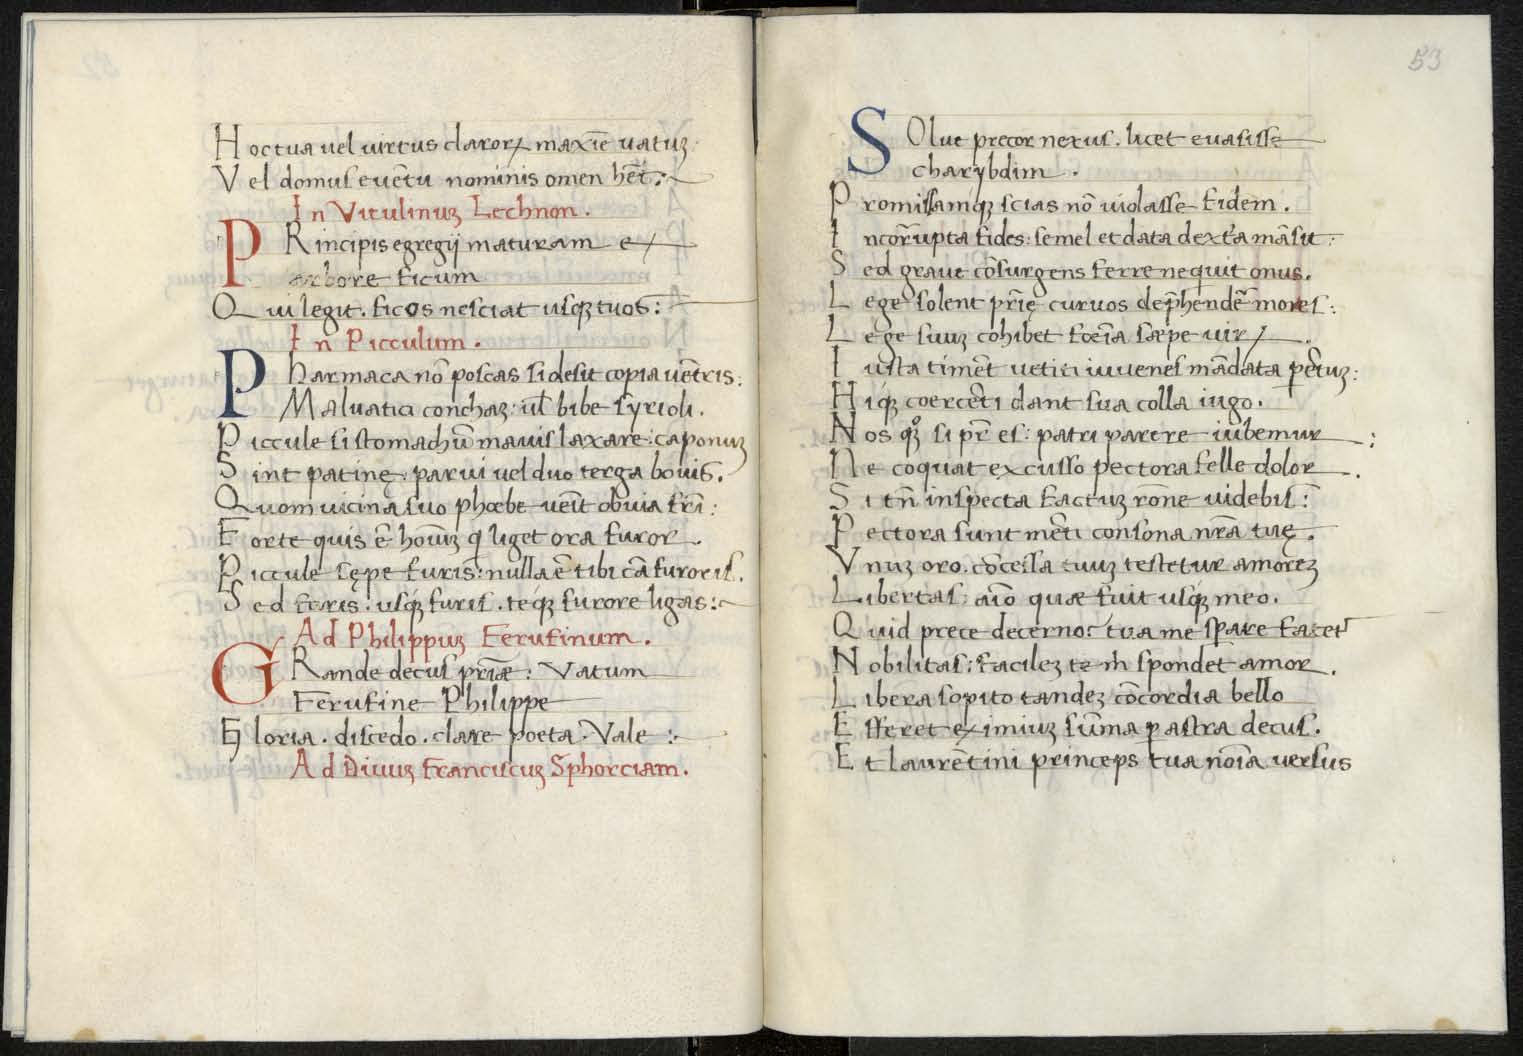 H oc tua uel uirtus claroꝝ maxīe uatuꝫ
V el domus euētu nominis omen hēt:
In Vitulinuꝫ Lechnon.
PRincipis egregij maturam ex
arbore ficum
Q ui legit. ficos nesciat usqꝫ tuos:
In Picculum.
Pharmaca nō poscas si desit copia uētris:
Maluatici conchaꝫ: ul̄ bibe syrioli.
P iccule si stomachū mauis laxare: caponuꝫ
S int patinę. parui uel duo terga bouis.
Q uom uicina suo phœbe uēit obuia fr̄i:
F orte quis ē houīꝫ q liget ora furor.
P iccule sępe furis: nulla ē tibi cā furoris.
S ed feris. usqꝫ furis. teqꝫ furore ligas:
Ad Philippuꝫ Ferufinum.
GRande decus pr̄iæ: Vatum
Ferufine Philippe
G loria. discedo. clare poeta. Vale:
Ad Diuuꝫ Franciscuꝫ Sphorciam.
53
SOlue precor nexus. licet euasisse
charybdim.
P romissamqꝫ scias nō uiolasse fidem.
I ncorrupta fides: semel et data dext̄a māsit:
S ed graue cōsurgens ferre nequit onus.
L ege solent pr̄ię curuos dep̄hendēr mores:
L ege suuꝫ cohibet fœīa sæpe uiꝝ.
I usta timēt uetiti iuuenes mādata per̄tuꝫ:
H iqꝫ coercēti dant sua colla iugo.
N os qͦꝫ si pr̄ es: patri parere iubemur:
N e coquat excusso pectora felle dolor.
S i tn̄ inspecta factuꝫ rōne uidebis:
P ectora sunt mēti consona nr̄a tuę.
V nuꝫ oro. cōcessa tuuꝫ testetur amoreꝫ
L ibertas: aīo quæ fuit usqꝫ meo.
Q uid prece decerno? tua me sꝑare fatet᷑
N obilitas: facileꝫ te m̄ spondet amor.
L ibera sopito tandeꝫ cōcordia bello
E fferet eximiuꝫ sūma ꝑ astra decus.
E t laurētini princeps tua noīa uersus